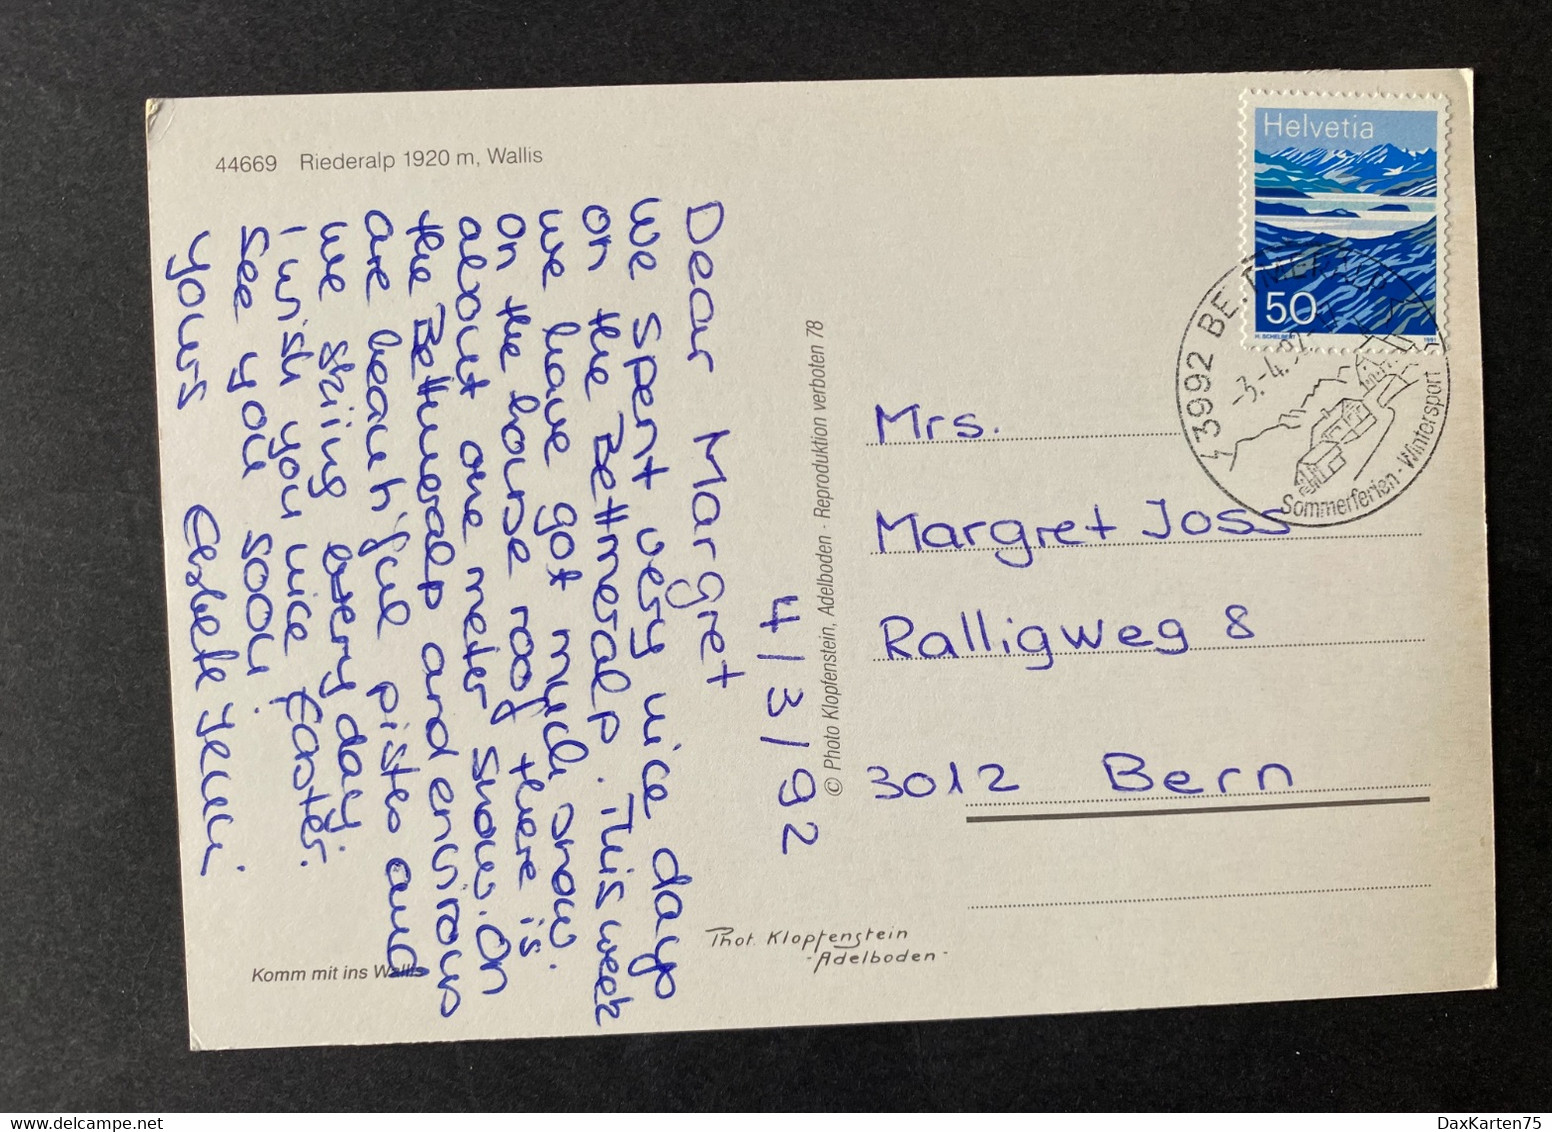 44669 Riederalp 1920 m, Wallis
4/3/92
Dear Margret
We spent very nice days
on the Bettmeralp. This week
we have got much snow.
On the house roof there is
about one meter snow. On
the Bettmeralp and environs
are beautiful pistes and
we skiing every day.
I wish you nice Easter.
See you soon
Yours
Komm mit ins Wallis
© Photo Klopfenstein, Adelboden - Reproduktion verboten 78
Phot. Klopfenstein
- Adelboden -
Helvetia
50
H. SCHELBERT 1991
3992 BETTMERALP
-3.-4.92
Sommerferien - Wintersport
Mrs.
Margret Joss
Ralligweg 8
3012 Bern
DaxKarten75